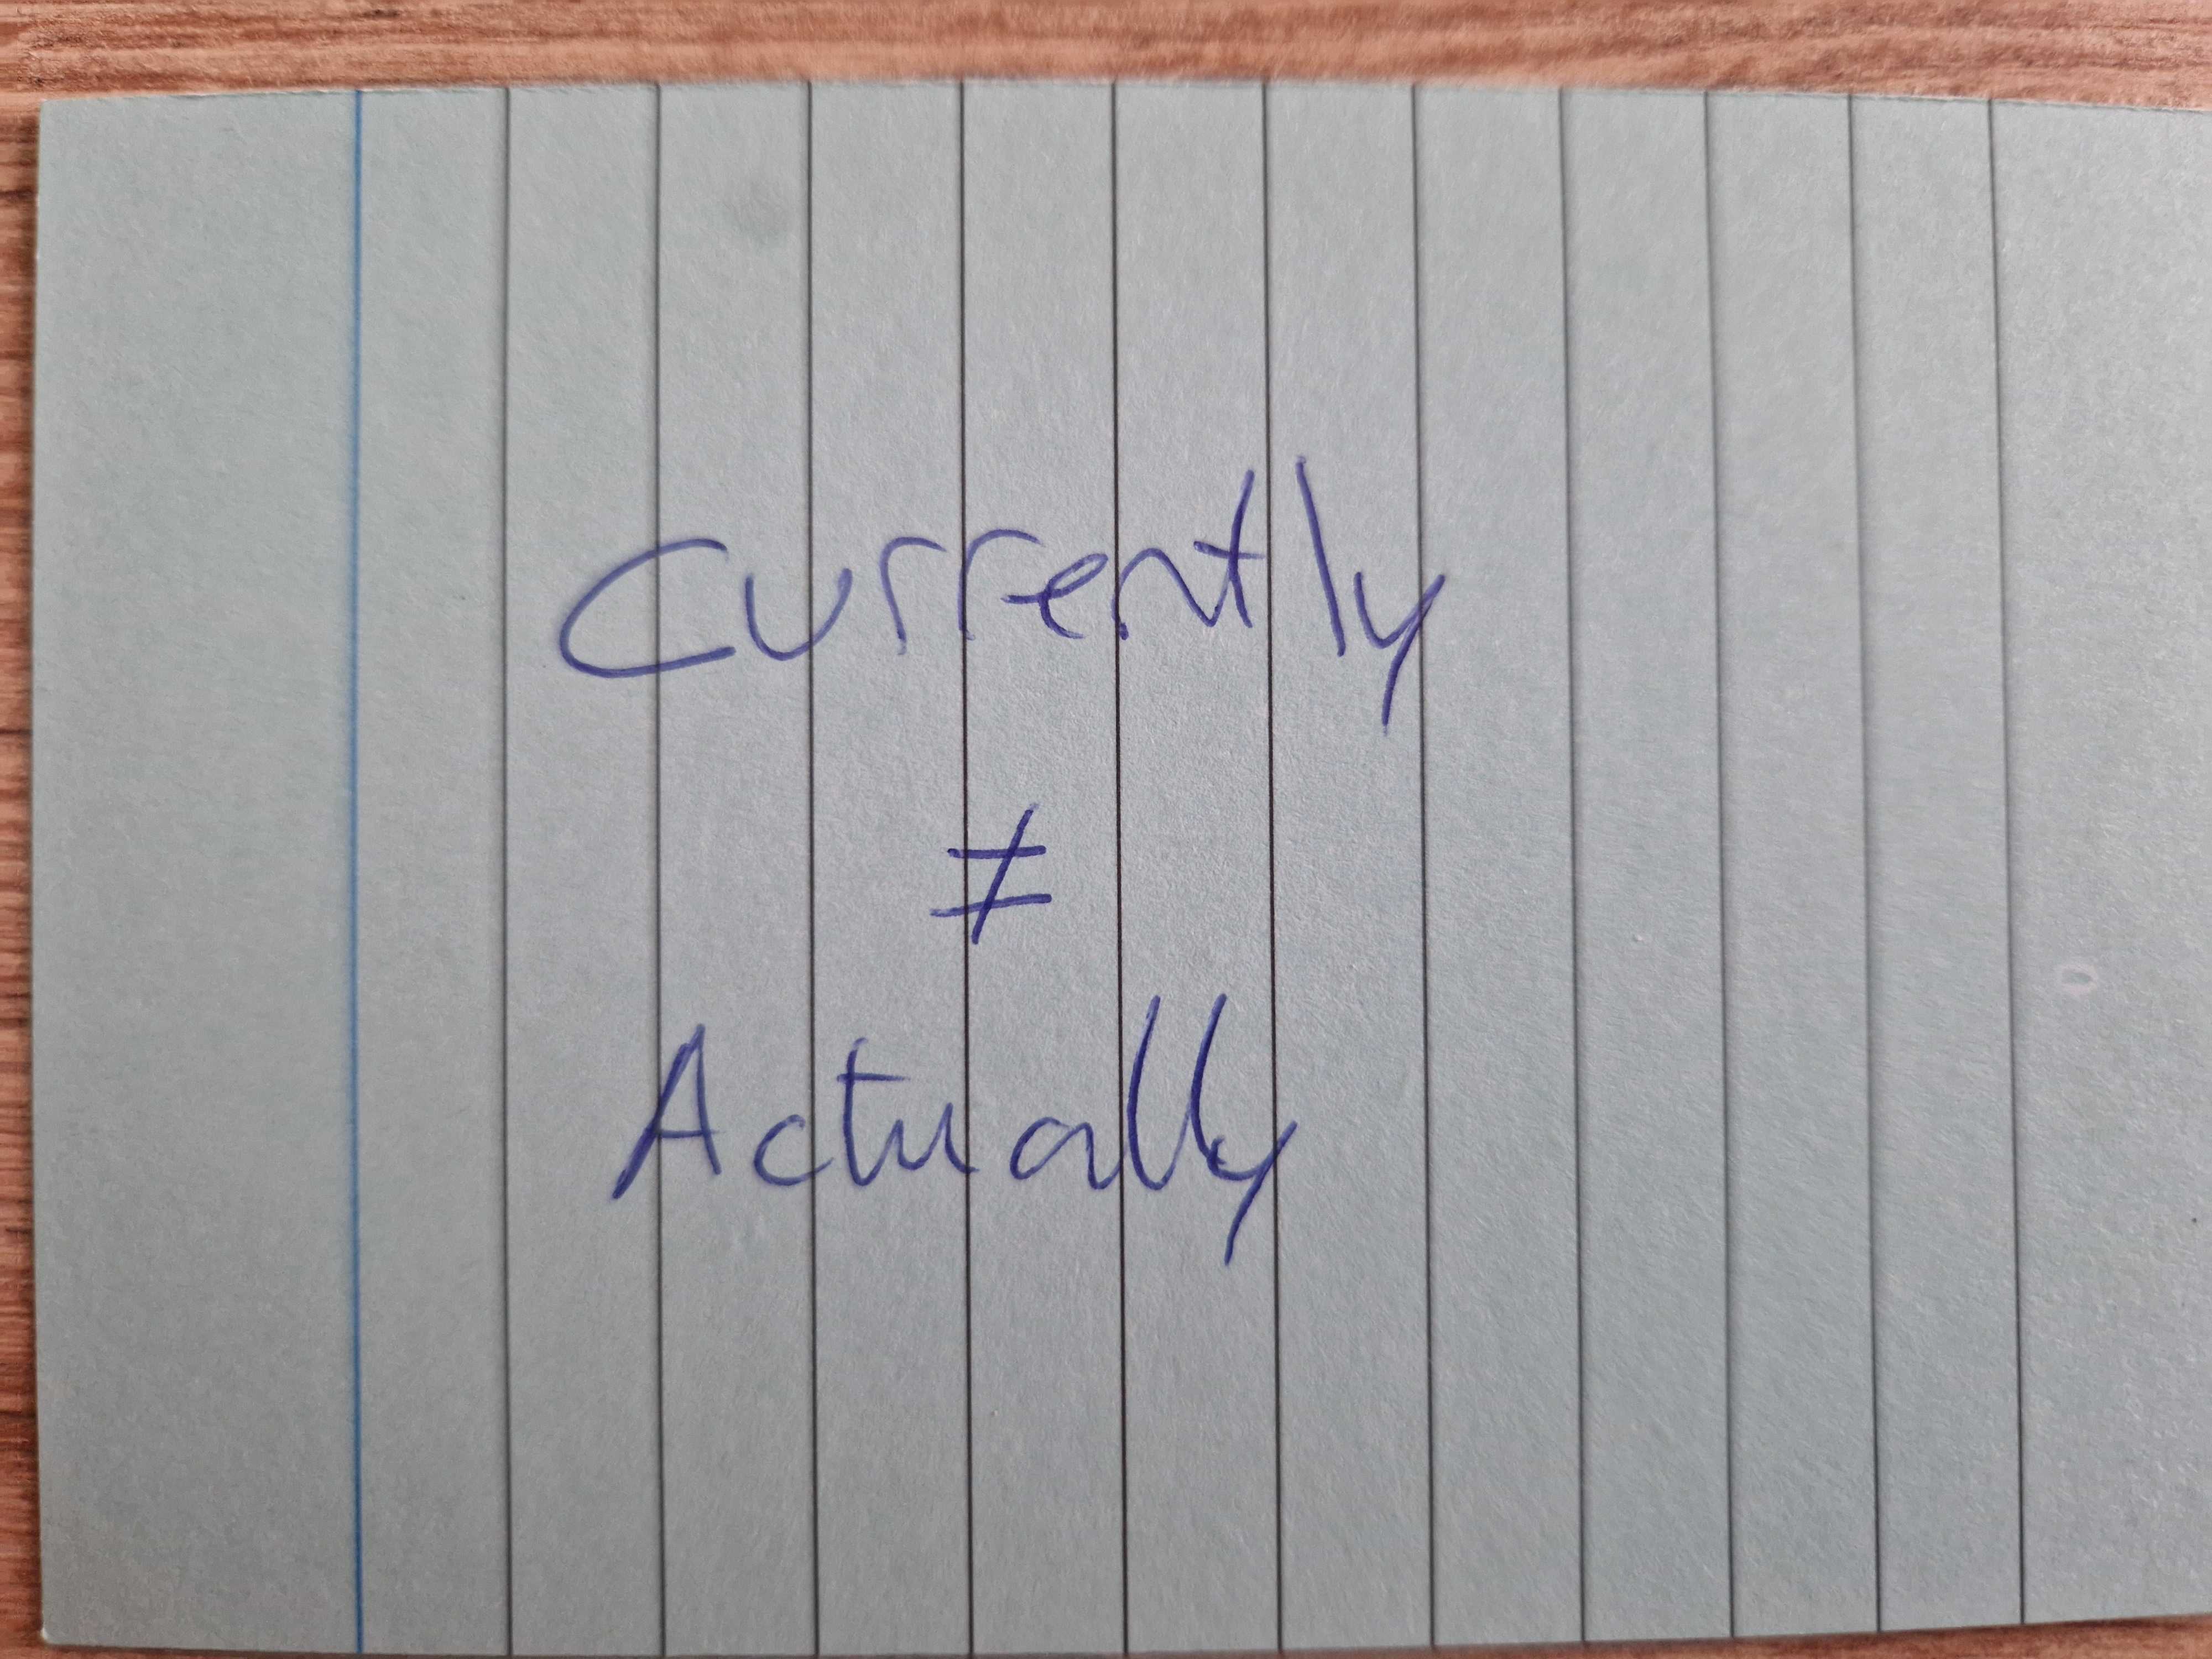 Currently
≠
Actually